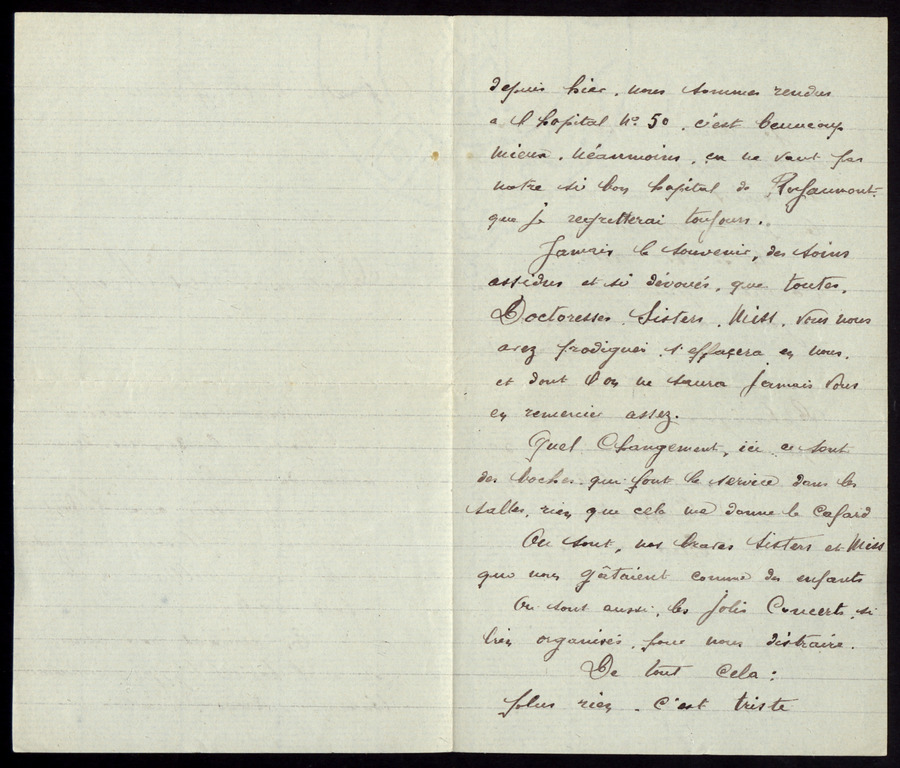 depuis hier. nous sommes rendus
a l hopital No 50. c'est beaucoup
mieux. Néanmoins, ça ne vaut pas
notre si bon hopital de Royaumont.
que je regretterai toujours..
Jamais le souvenir, des soins
assidus et si dévoués, que toutes,
Doctoresses. Sisters. Miss. Vous nous
avez prodigués s'effaçera en nous.
et dont l'on ne saura jamais Vous
en remercier assez.
Quel Changement, ici ce sont
des boches. qui font le service dans les
salles, rien que cela me donne le Cafard
Ou sont, nos braves Sisters et Miss
que nous gâtaient comme des enfants
Ou sont aussi, les Jolis Concerts, si
bien organisés, pour nous distraire.
De tout Cela:
plus rien. C'est triste